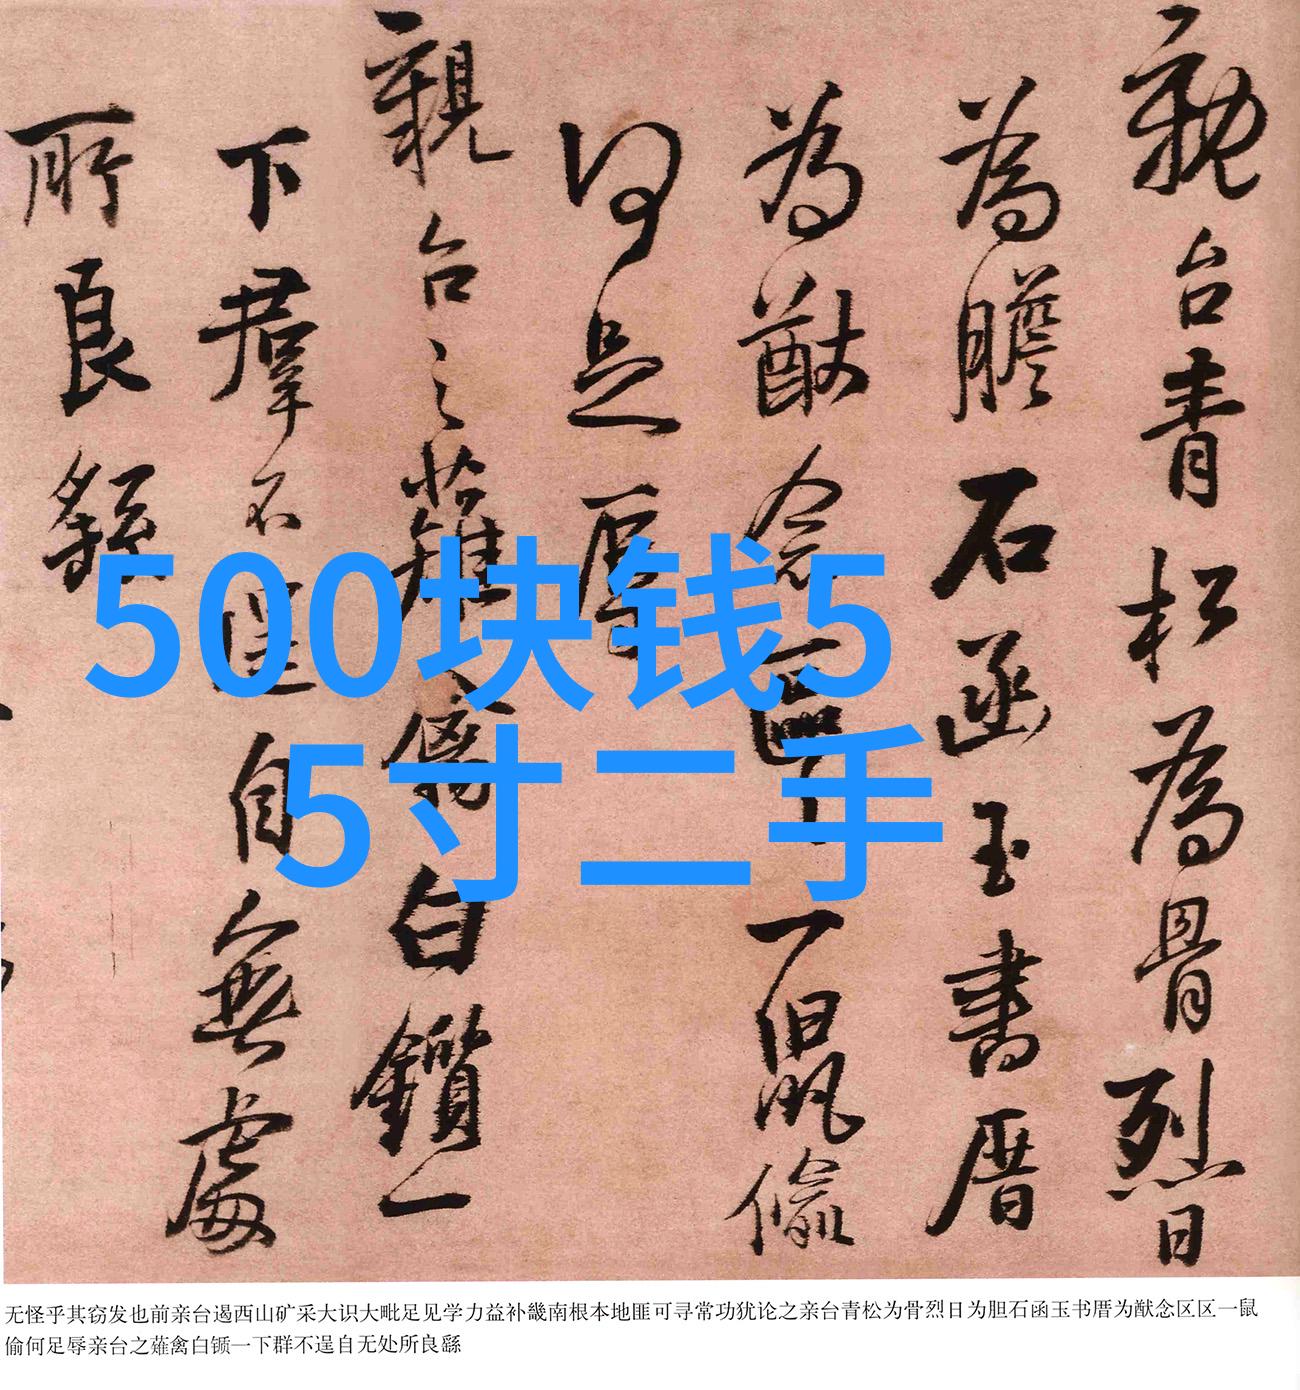 親台青松為骨烈日
為膽石函玉書厝
為猷念區區一鼠偷
何足辱
親台之薤禽白鑕一
下群不逞自無處
所良繇
500块钱5
5寸二手
无怪乎其窃发也前亲台遏西山矿采大识大毗足见学力益补畿南根本地匪可寻常功犹论之亲台青松为骨烈日为胆石函玉书厝为猷念区区一鼠
偷何足辱亲台之薤禽白锧一下群不逞自无处所良繇